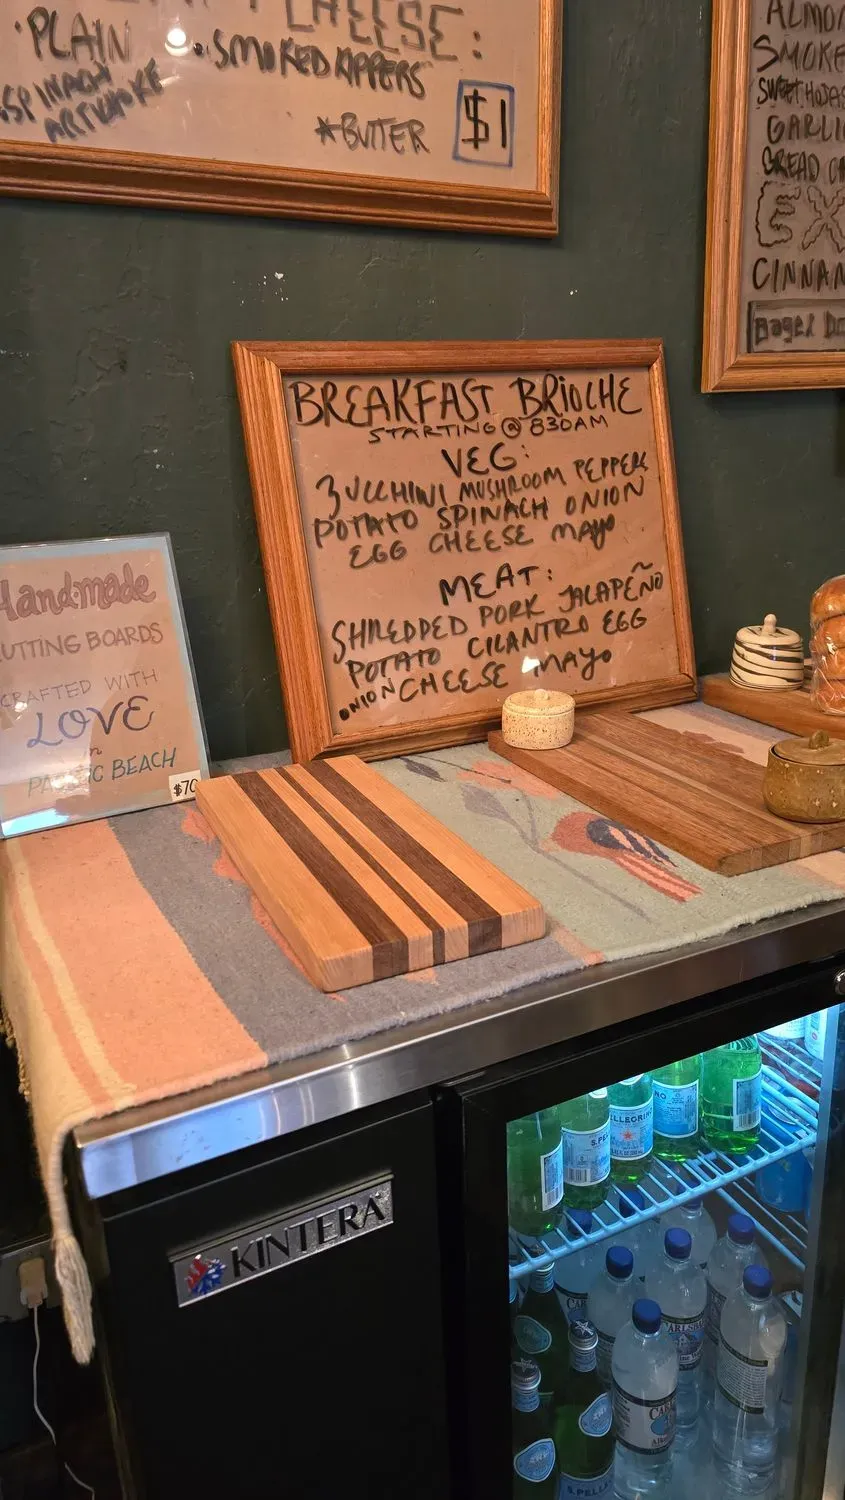 CHEESE:
·PLAIN
·SMOKED KIPPERS
·SPINACH
ARTICHOKE
*BUTTER
$1
SMOKE
GARLIC
CINNAN
Bagel Do
BREAKFAST BRIOCHE
STARTING @ 830AM
VEG:
ZUCCHINI MUSHROOM PEPPERS
POTATO SPINACH ONION
EGG CHEESE MAYO
MEAT:
SHREDDED PORK JALAPEÑO
POTATO CILANTRO EGG
ONION CHEESE MAYO
Handmade
CUTTING BOARDS
CRAFTED WITH
LOVE
in
PACIFIC BEACH
$70
KINTERA
S.PE
ELLEGRIN
NO
CARLSBA
CA
S.PELL